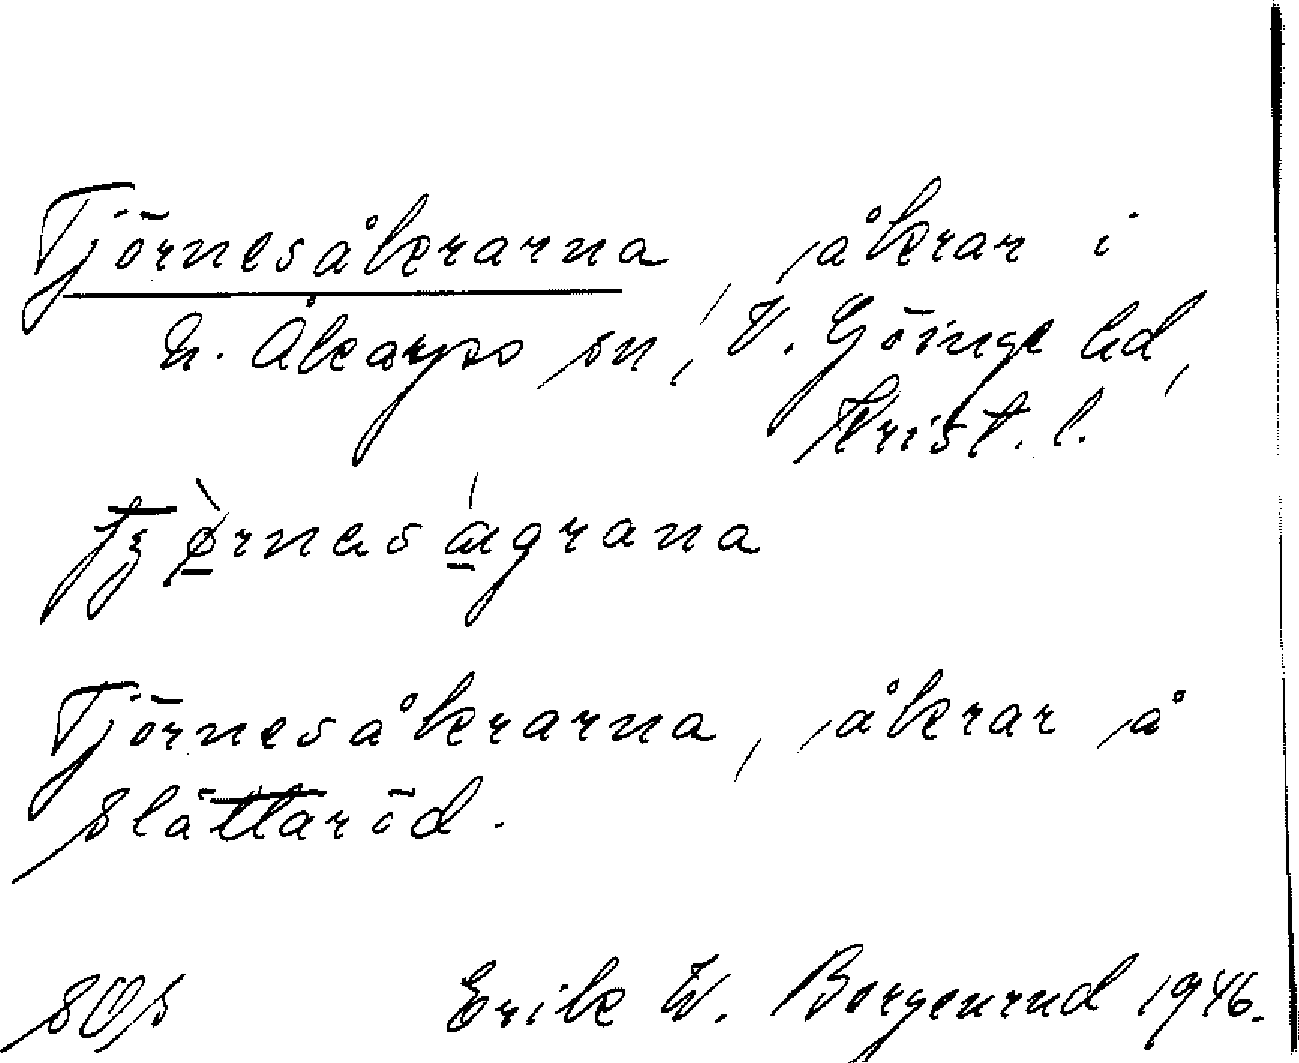 Tjörnesåkrarna, åkrar i
N. Åkarps sn, V. Göinge hd,
Krist. l.
Tjörnesåkrarna, åkrar å
Slättaröd.
SOS Erik W. Bergenrud 1946.